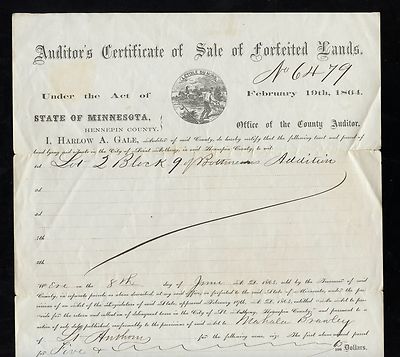 Auditor's Certificate of Sale of Forfeited Lands.
No 6479
Under the Act of February 19th, 1864.
STATE OF MINNESOTA,
HENNEPIN COUNTY.
Office of the County Auditor.
I, HARLOW A. GALE, Auditor of said County, do hereby certify that the following tract and parcel of
land lying and situate in the City of Saint Anthony, in said Hennepin County, to wit:
1st. Lot 2 Block 9 of Bottineaus Addition
2d.
3d.
4th.
5th.
Were on the 8th day of June A. D. 186 sold by the Treasurer of said
County, in separate parcels as above described, at my said office, as forfeited to the said State of Minnesota, under the
of an act of the Legislature of said State, approved February 19th, A. D. 1864, entitled
for the return and collection of delinquent taxes in the City of St. Anthony, Hennepin County, pursuant to a
notice of sale duly published, conformably to the provisions of said act to
of St Anthony for the following sums, viz: The first above named parcel
for Five & 100 Dollars.